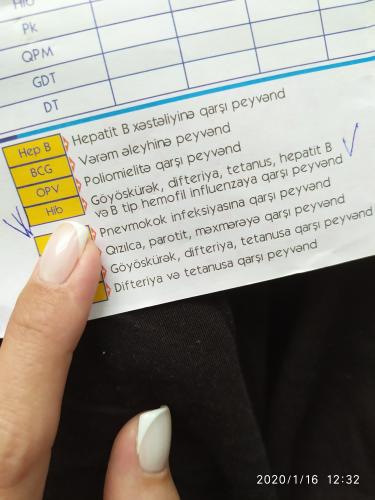 Hib
Pk
QPM
GDT
DT
Hep B Hepatit B xəstəliyinə qarşı peyvənd
BCG Vərəm əleyhinə peyvənd
OPV Poliomielitə qarşı peyvənd
Hib Göyöskürək, difteriya, tetanus, hepatit B
və B tip hemofil influenzaya qarşı peyvənd
Pnevmokok infeksiyasına qarşı peyvənd
Qızılca, parotit, məxmərəyə qarşı peyvənd
Göyöskürək, difteriya, tetanusa qarşı peyvənd
Difteriya və tetanusa qarşı peyvənd
2020/1/16 12:32